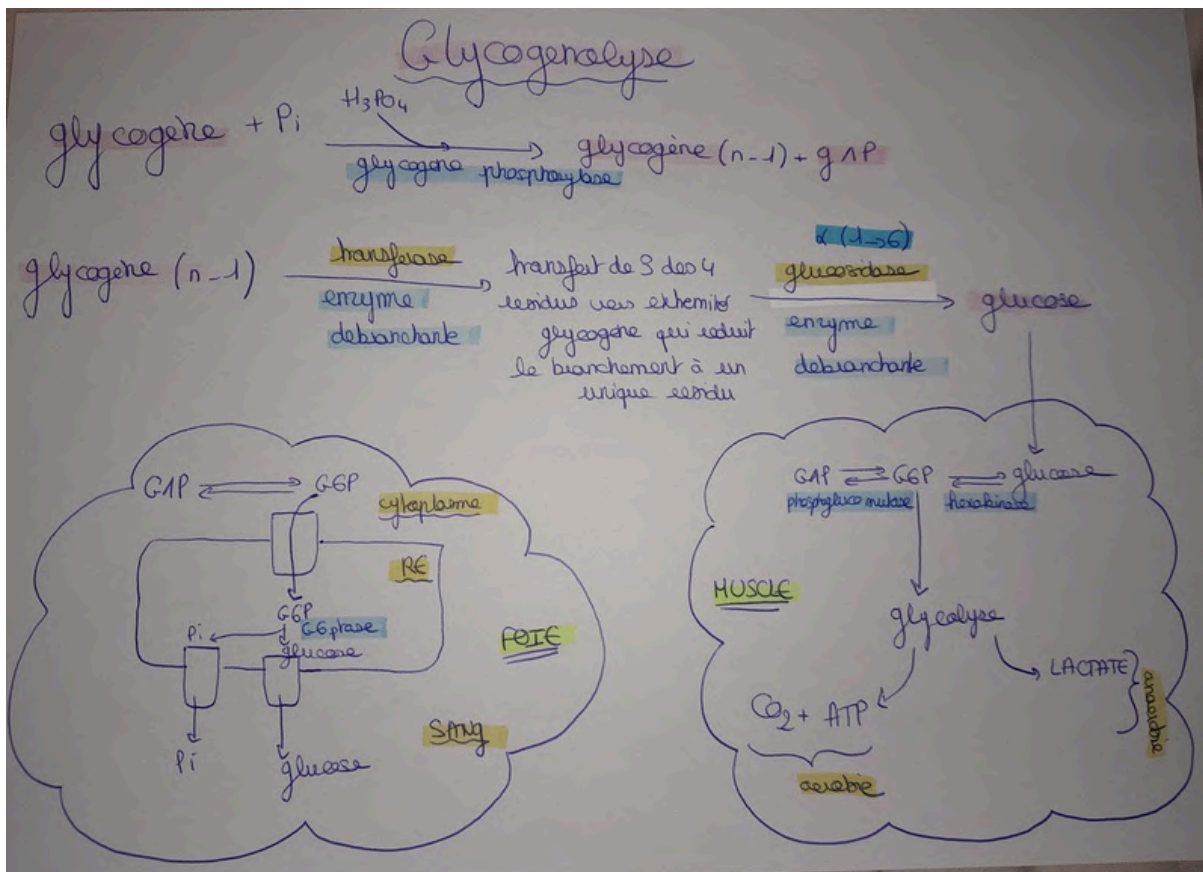 Glycogenolyse
H₃PO₄
glycogène + Pi
glycogene phosphorylase
glycogène (n-1) + g1P
glycogène (n-1)
transferase
enzyme
debranchante
transfert de 3 des 4
residus vers extremité
glycogene qui reduit
le branchement à un
unique residu
α (1→6)
glucosidase
enzyme
debranchante
glucose
G1P
G6P
cytoplasme
RE
G6P
Pi
G6Ptase
glucose
FOIE
SANG
Pi
glucose
G1P
G6P
glucose
phosphogluco mutase
hexokinase
MUSCLE
glycolyse
LACTATE
anaerobie
CO₂ + ATP
aerobie